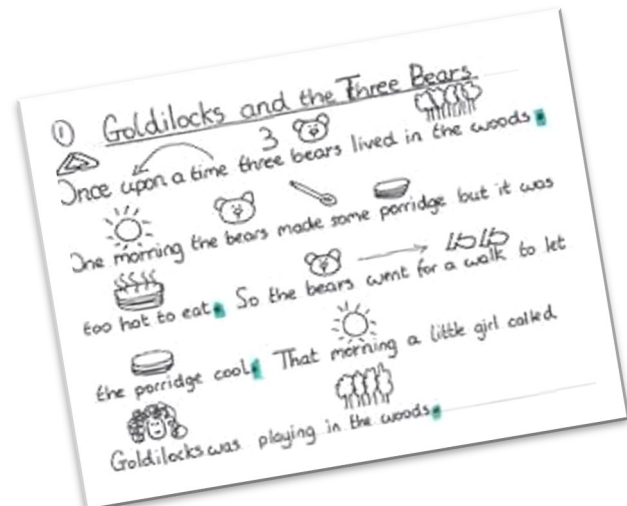 ① Goldilocks and the Three Bears
3
Once upon a time three bears lived in the woods.
One morning the bears made some porridge but it was
too hot to eat. So the bears went for a walk to let
the porridge cool. That morning a little girl called
Goldilocks was playing in the woods.